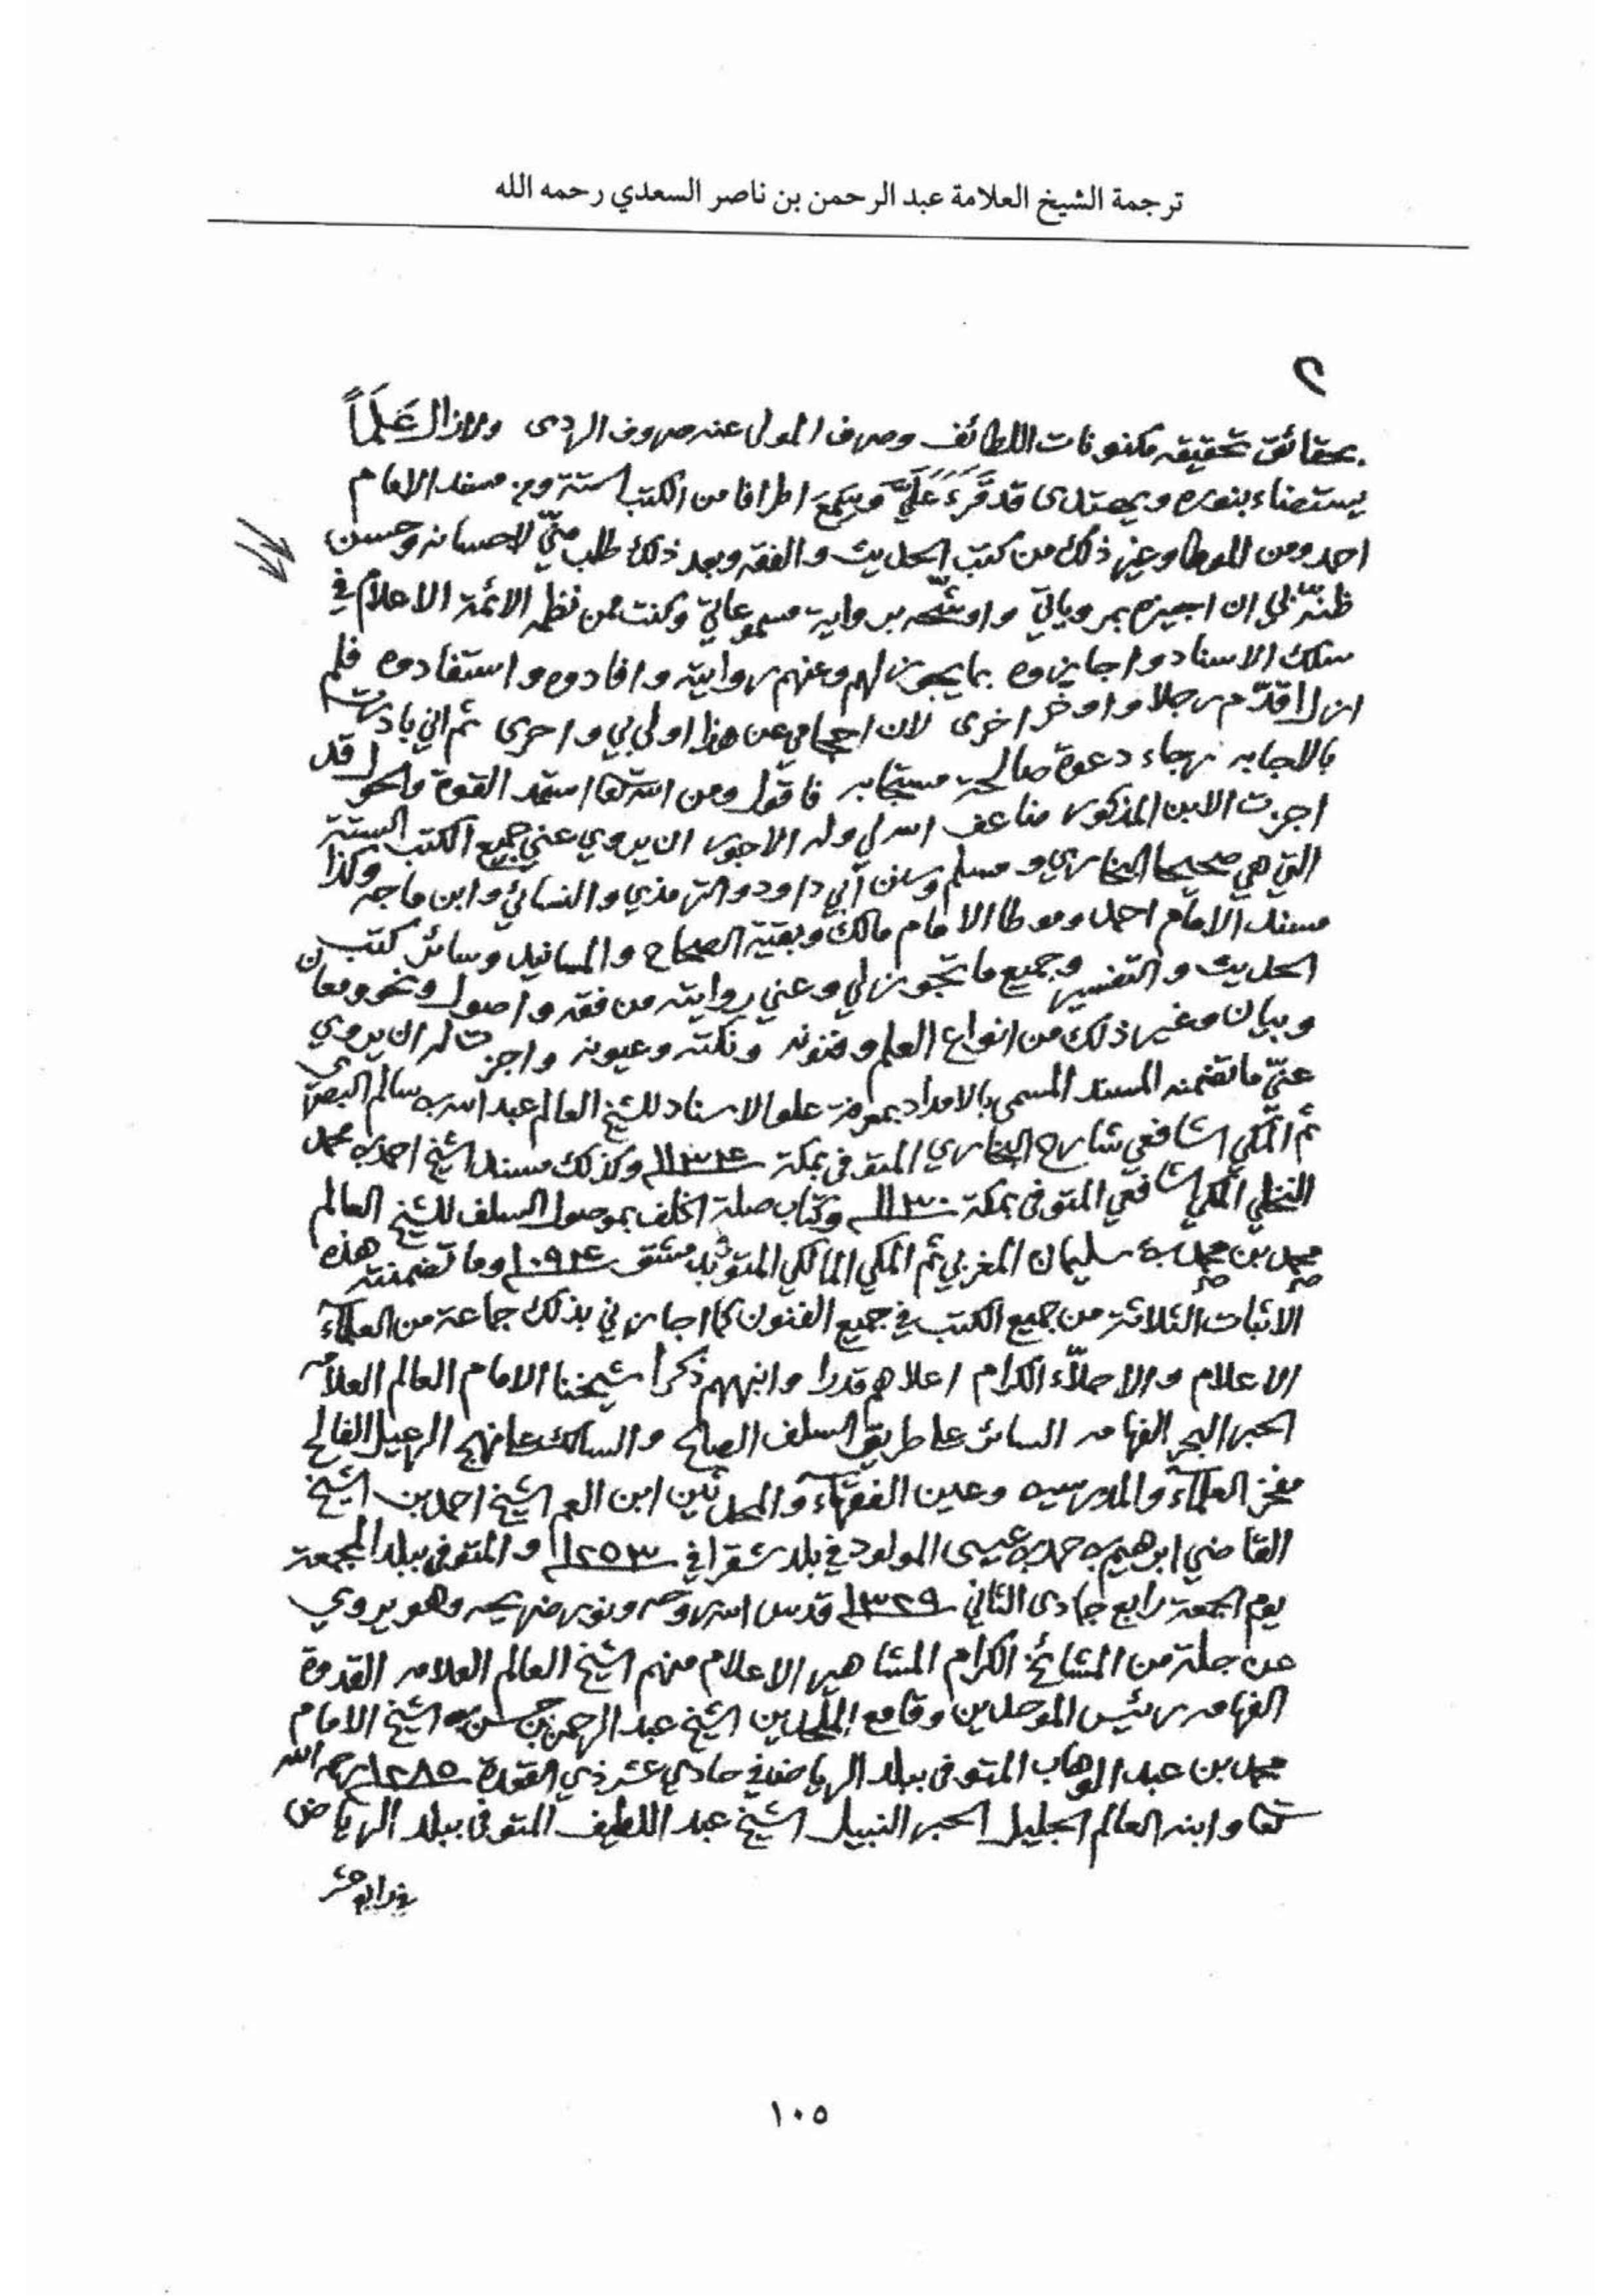 ترجمة الشيخ العلامة عبد الرحمن بن ناصر السعدي رحمه الله
٢
بحقائق تحقيقه مكنونات اللطائف وصرف المولى عنه صروف الردى ولا زال عَلَماً
يستضاء بنوره ويهتدى قد قَرَءَ عَلَيَّ وسَمِعَ اطرافا من الكتب الستة ومن مسند الامام
احمد ومن الموطا وغير ذلك من كتب الحديث والفقه وبعد ذلك طلب منّي لاحسانه وحسن
ظنّه بي ان اجيزه بمروياتي واوشّحه برواية مسموعاتي وكنت ممن نظمه الائمة الاعلام في
سلك الاسناد واجازوه بما يجوز لهم وعنهم روايته وافادوه واستفادوه فلم
ازل اقدّم رجلا واوخر اخرى لان احجامي عن هذا اولى بي واحرى ثم اني بادرت
بالاجابه رجاء دعوة صالحة مستجابه فاقول ومن الله تعا استمد القوة والحول قد
اجزت الابن المذكور ضاعف الله لي وله الاجور ان يروي عني جميع الكتب الستة
التي هي صحيحا البخاري ومسلم وسنن أبي داود والترمذي والنسائي وابن ماجه وكذا
مسند الامام احمد وموطا الامام مالك وبقية الصحاح والمسانيد وسائر كتب
الحديث والتفسير وجميع ما تجوز لي وعني روايته من فقه واصول ونحو ومعان
وبيان وغير ذلك من انواع العلم وفنونه ونكته وعيونه واجزت له ان يروي
عنّي ما تضمنه المسند المسمى بالامداد بمعرفة علو الاسناد للشيخ العالم عبد الله بن سالم البصري
ثم المكي الشافعي شارح البخاري المتوفى بمكة ١١٣٤ وكذلك مسند الشيخ احمد بن محمد
النخلي المكي الشافعي المتوفى بمكة ١١٣٠ وكتاب صلة الخلف بموصول السلف للشيخ العالم
محمد بن محمد بن سليمان المغربي ثم المكي المالكي المتوفى بدمشق ١٠٩٤ وما تضمنته هذه
الاثبات الثلاثة من جميع الكتب في جميع الفنون كما اجازني بذلك جماعة من العلماء
الاعلام والاجلّاء الكرام اعلاهم قدرا وانبههم ذكرا شيخنا الامام العالم العلامه
الحبر البحر الفهامه السائر على طريق السلف الصالح والسالك على نهج الرعيل الفالح
مفخر العلماء والمدرسين وعين الفقهاء والمحدثين ابن العم الشيخ احمد بن الشيخ
القاضي ابرهيم بن حمد بن عيسى المولود في بلد شقرا في ١٢٥٣ والمتوفى ببلد المجمعة
يوم الجمعة رابع جمادى الثاني ١٣٢٩ قدس الله روحه ونور ضريحه وهو يروي
عن جلة من المشائخ الكرام المشاهير الاعلام منهم الشيخ العالم العلامه القدوة
الفهامه رئيس الموحدين وقامع الملحدين الشيخ عبد الرحمن بن حسن بن الشيخ الامام
محمد بن عبد الوهاب المتوفى ببلد الرياض في حادي عشر ذي القعدة ١٢٨٥ رحمه الله
تعا وابنه العالم الجليل الحبر النبيل الشيخ عبد اللطيف المتوفى ببلد الرياض
في رابع عشر
١٠٥